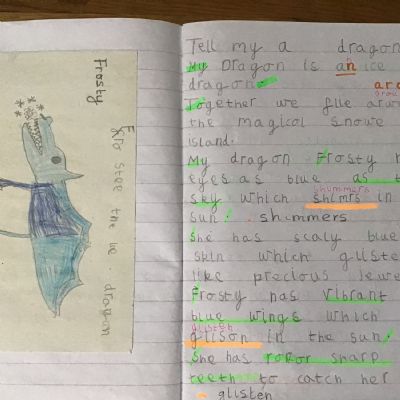 Frosty
the ice dragon
Tell my a dragon
My Dragon is an ice
dragon.
Together we flie
the magical snowe
island.
My dragon Frosty
eyes as blue as
sky which shimrs in
shimmers
sun. shimmers
She has scaly blue
skin which
like precious
Frosty has vibrant
blue wings which
glisten
glison in the sun.
She has rasor sharp
teeth to catch her
glisten